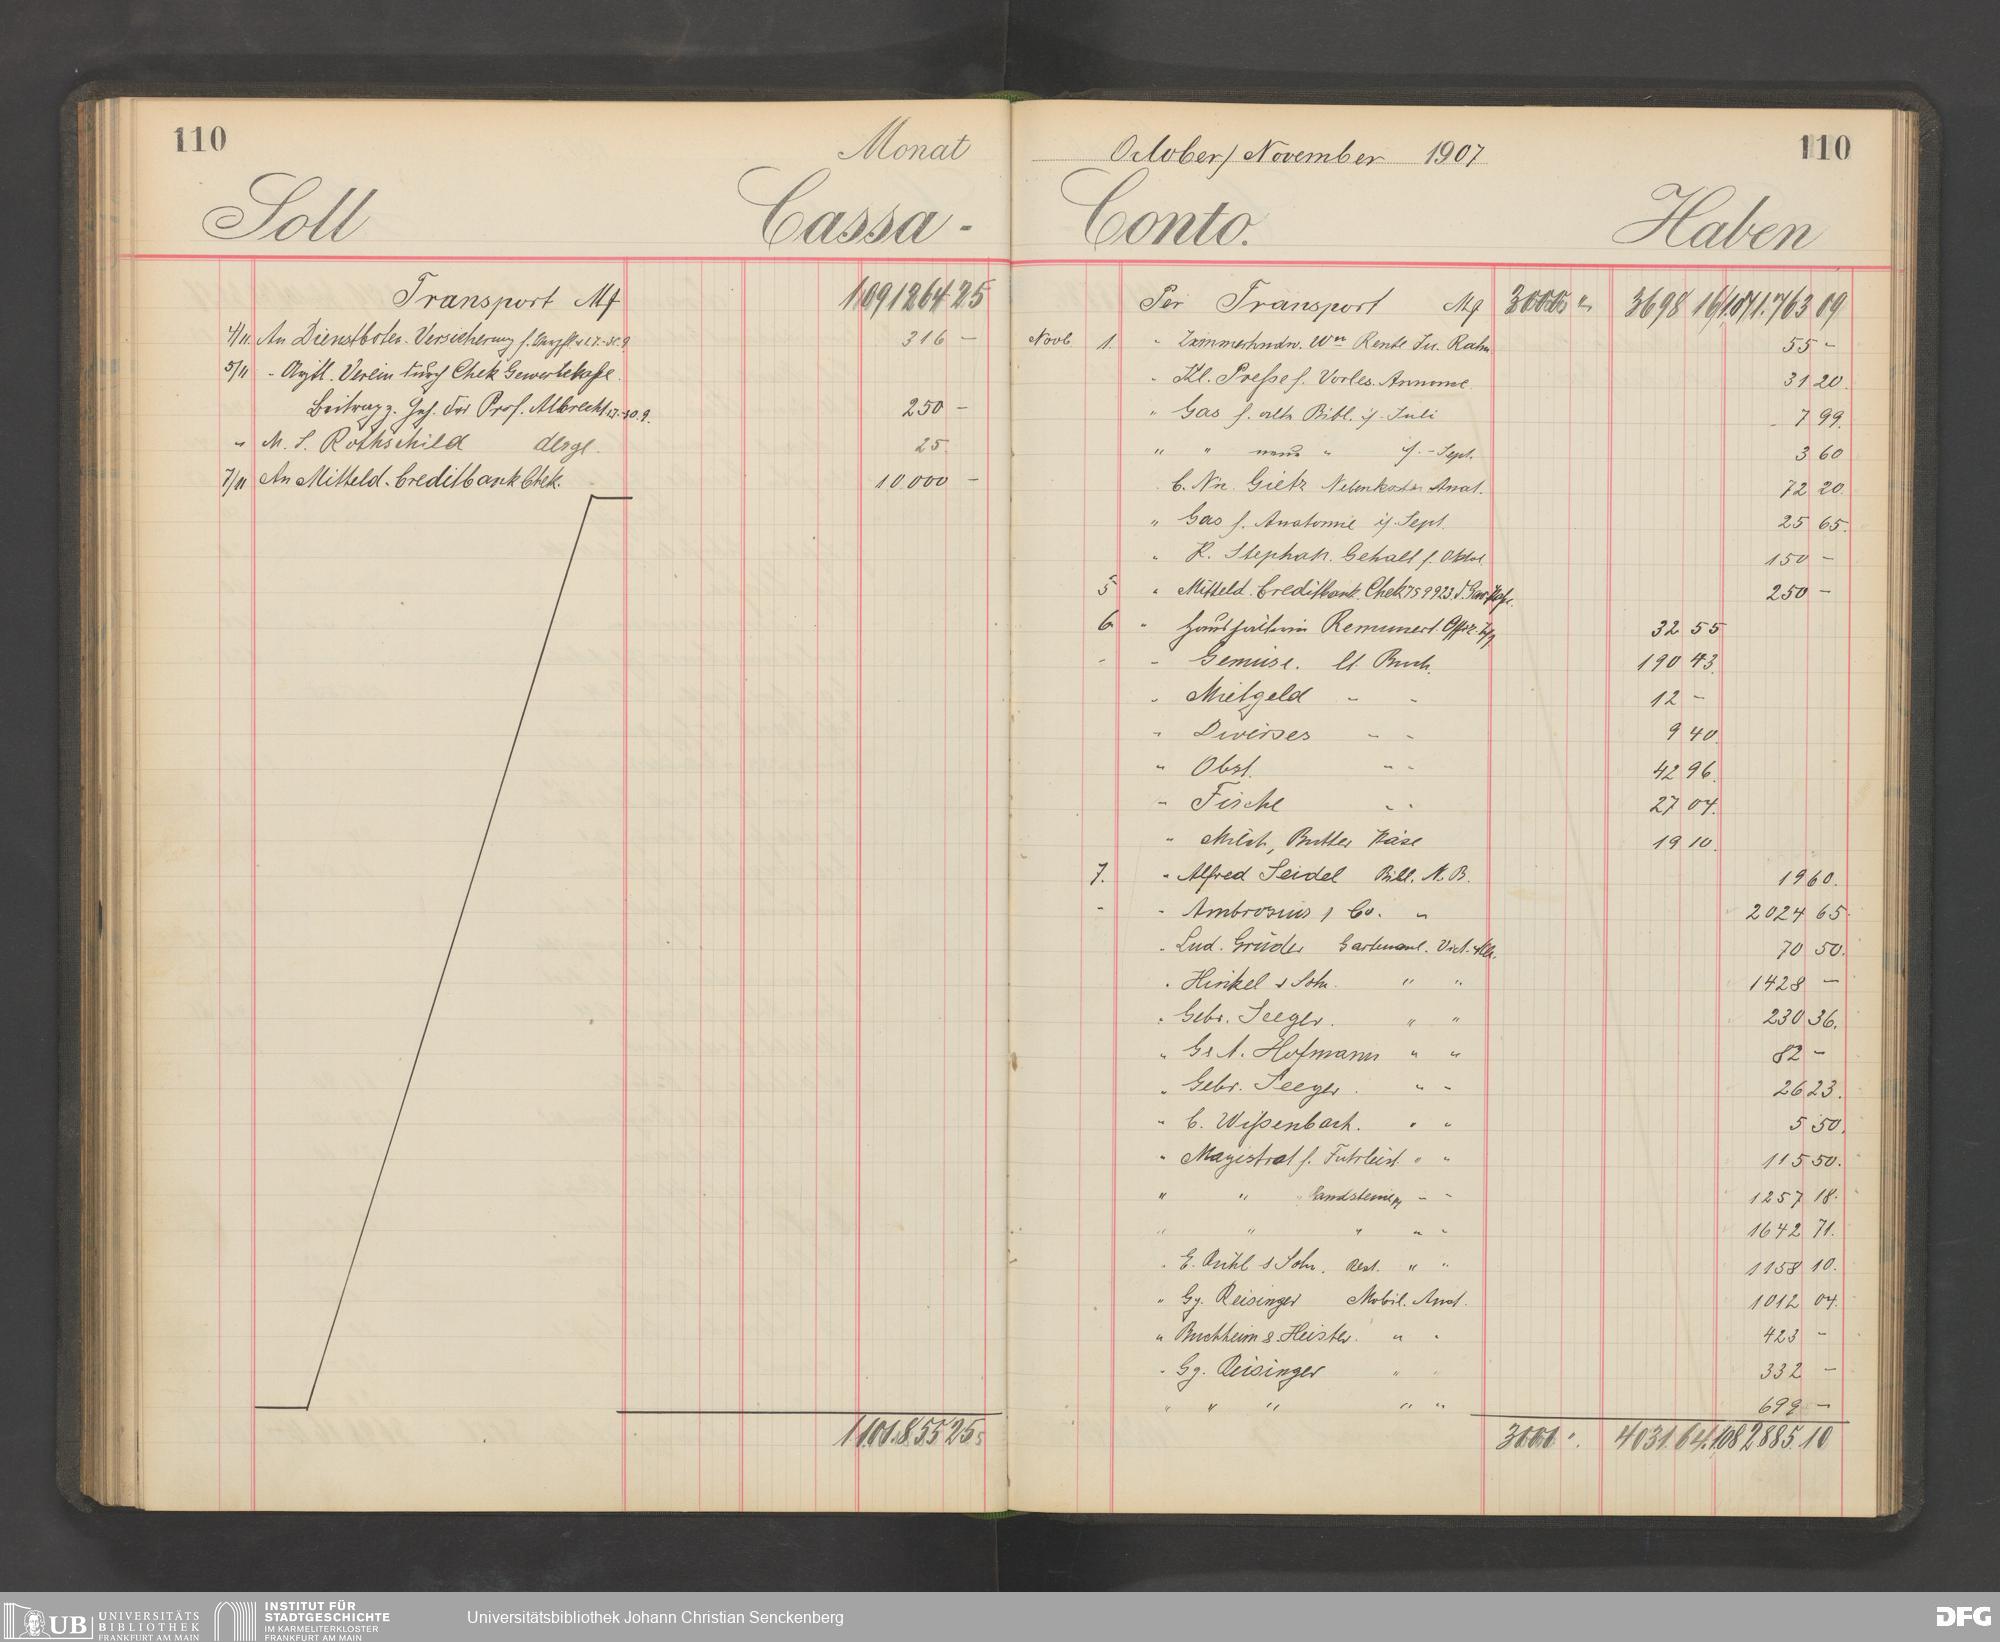 110
Monat
Soll
Cassa-
Transport Mk 1091264 25
4/11. An Dienstboten-Versicherung f. 316 –
5/11 - Ärztl. Verein durch Chek Gewerbekasse.
Beitrag z. Geh. des Prof. Albrecht 250 –
" M. S. Rothschild desgl. 25.
7/11 An Mitteld. Creditbank Chek. 10.000 –
1101.855 25
October/November 1907
110
Conto.
Haben
Per Transport Mk 3000 " 3698 16 1.071.763 09
Novb 1. " Zimmerhndw. Wwe Rente 55 –
" Kl. Presse f. Vorles. Annonce 31 20.
" Gas f. alte Bibl. Juli 7 99.
" " neue " Sept. 3 60
C. Nebenkosten Anat. 72 20.
" Gas f. Anatomie Sept. 25 65.
" R. Stephan. Gehalt f. Oktob. 150 –
5 " Mitteld. Creditbank. Chek 250 –
6 " Haushälterin Remuner. 32 55
" " Gemüse. lt. Buch. 190 43.
" Mietgeld " " 12 –
" Diverses " " 9 40.
" Obst. " " 42 96.
" Fische " " 27 04.
" Milch, Butter Käse 19 10.
7. " Alfred Seidel Bibl. N. B. 19 60.
" " Ambrosius & Co. " 2024 65.
" Lud. Grüder Gartenanl. Vict. 70 50.
" Hinkel & Sohn. " " 1428 –
" Gebr. Seeger. " " 230 36.
" G & A. Hofmann " " 82 –
" Gebr. Seeger. " " 26 23.
" C. Wissenbach. " " 5 50.
" Magistrat f. Fuhrleist. " " 115 50.
" " " " " 1257 18.
" " " " " 1642 71.
" & Sohn. " " 1158 10.
" Gg. Reisinger Mobil. Anat. 1012 04.
" Buchheim & Heister. " " 423 –
" Gg. Reisinger " " 332 –
" " " " " 699 –
3000 ". 4031.64. 1082885.10
UB
UNIVERSITÄTS
BIBLIOTHEK
FRANKFURT AM MAIN
INSTITUT FÜR
STADTGESCHICHTE
IM KARMELITERKLOSTER
FRANKFURT AM MAIN
Universitätsbibliothek Johann Christian Senckenberg
DFG